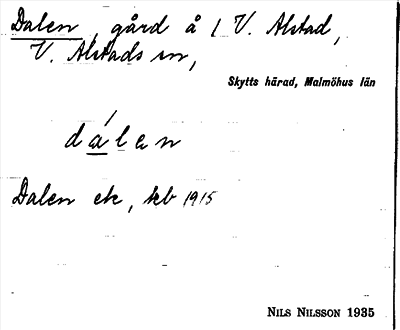 Dalen, gård å 1 V. Alstad,
V. Alstads sn,
Skytts härad, Malmöhus län
dálen
Dalen ek, kb 1915
NILS NILSSON 1935